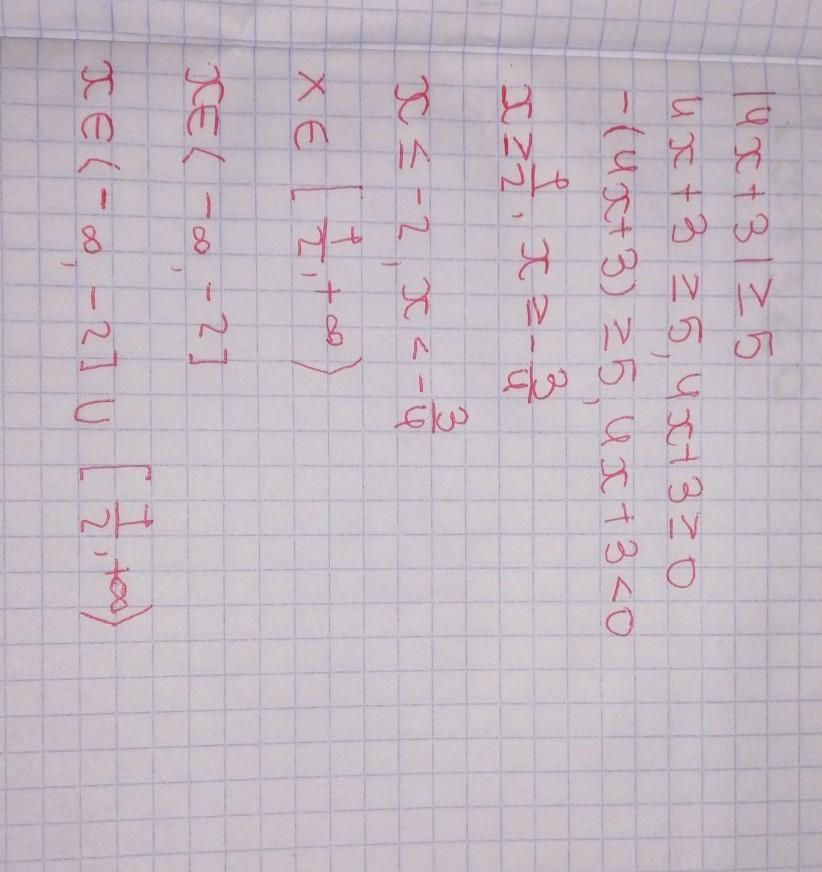 |4x+3|≥5
4x+3≥5, 4x+3≥0
-(4x+3)≥5, 4x+3<0
x≥1/2, x≥-3/4
x≤-2, x<-3/4
x∈[1/2, +∞)
x∈(-∞, -2]
x∈(-∞, -2]∪[1/2, +∞)